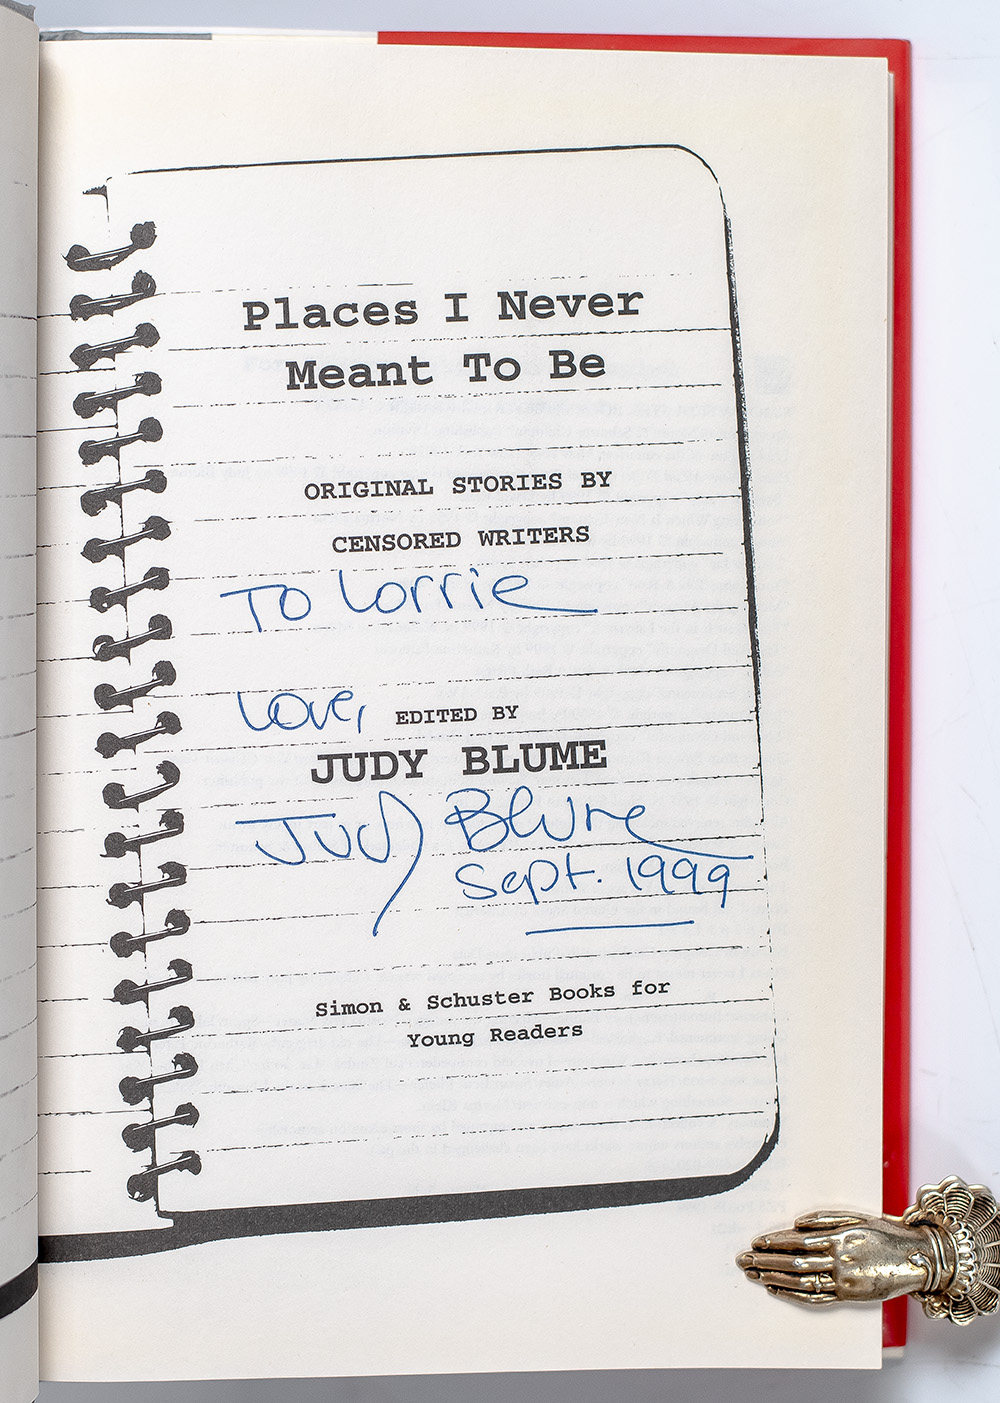 Places I Never
Meant To Be
ORIGINAL STORIES BY
CENSORED WRITERS
To Lorrie
Love,
EDITED BY
JUDY BLUME
Judy Blume
Sept. 1999
Simon & Schuster Books for
Young Readers